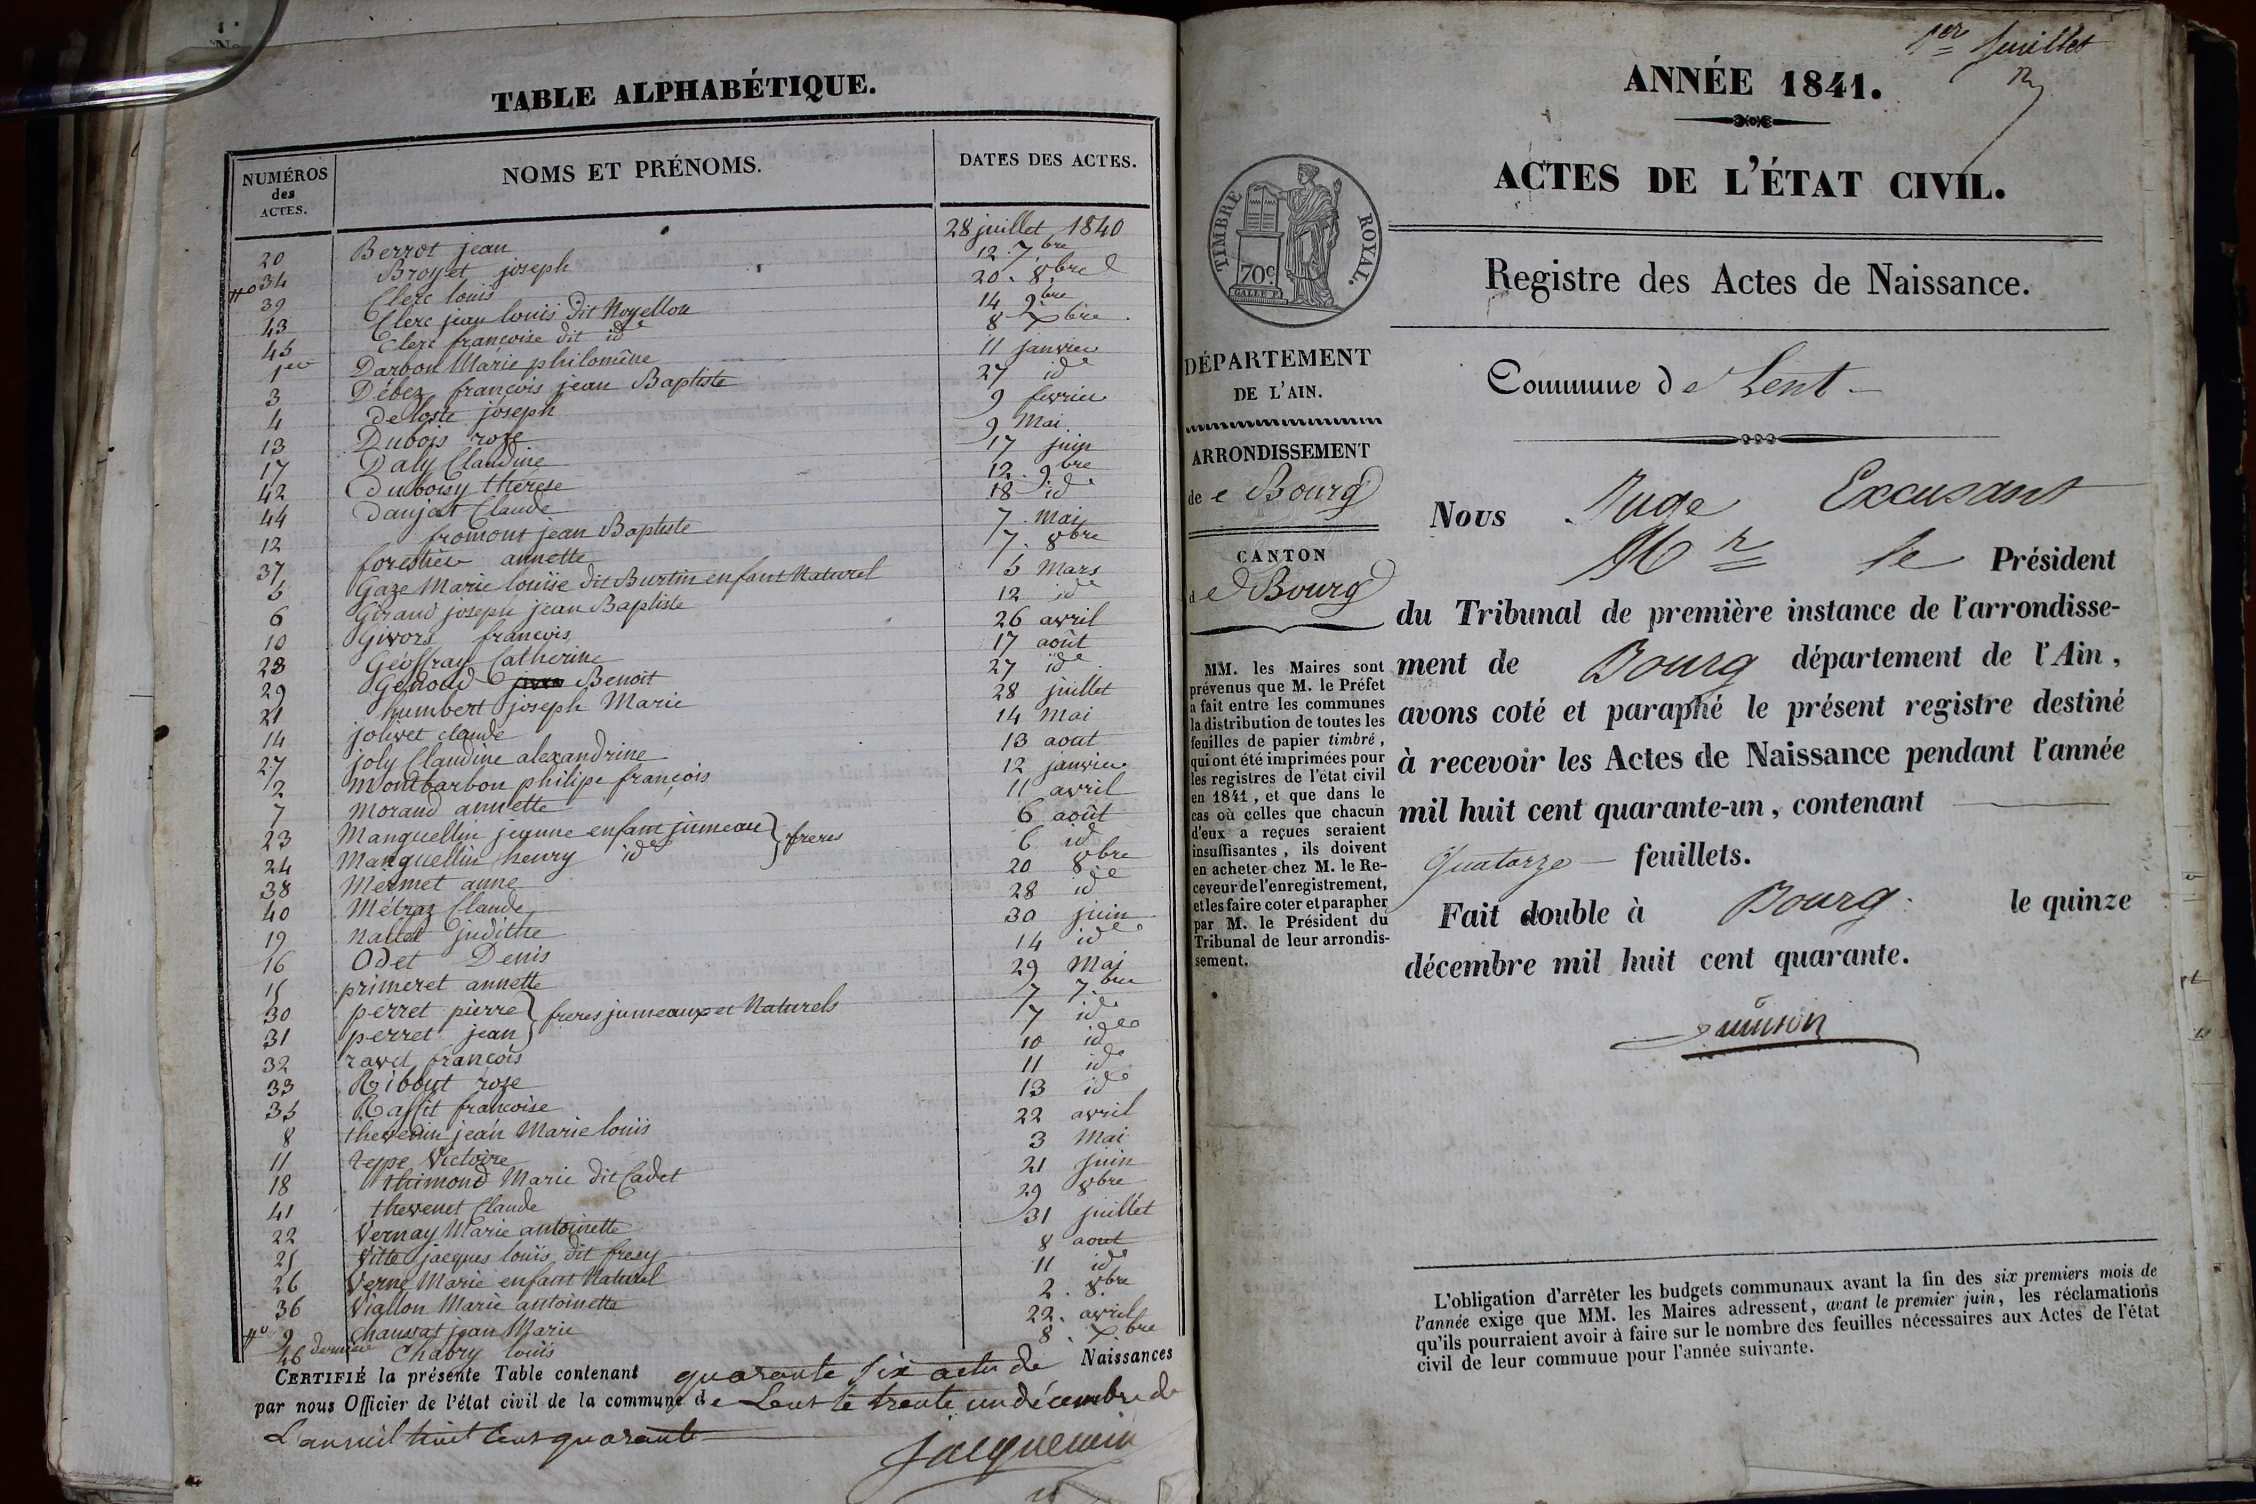 TABLE ALPHABÉTIQUE.
NUMÉROS des ACTES.
NOMS ET PRÉNOMS.
DATES DES ACTES.
20 Berrot jean 28 juillet 1840
34 Broyet joseph 12. 7bre
39 Clerc louis 20. 8bre
43 Clerc jean louis dit Noyellon 14 9bre
45 Clerc francoise dit id 8 Xbre
1er Darbon Marie philomène 11 janvier
3 Débez françois jean Baptiste 27 id
4 deloste joseph 9 fevrier
13 Dubois rose 9 Mai
17 Daly Claudine 17 juin
42 duboisy therese 12. 9bre
44 danjat Claude 18 id
12 fromont jean Baptiste 7 mai
37 forestier annette 7. 8bre
5 Gaze Marie louise dit Burtin enfant Naturel 5 Mars
6 Girand joseph jean Baptiste 12 id
10 Givors francois 26 avril
28 Geoffray Catherine 17 août
29 Genoud Benoit 27 id
21 humbert joseph Marie 28 juillet
14 jolivet claude 14 mai
27 joly Claudine alexandrine 13 aout
2 montbarbon philipe françois 12 janvier
7 Morand annette 11 avril
23 Manguellin jeanne enfant jumeau } freres 6 août
24 Manguellin henry id 6 id
38 Mermet anne 20 8bre
40 Métraz Claude 28 id
19 Nallet judithe 30 juin
16 Odet Denis 14 id
15 primeret annette 29 Mai
30 perret pierre } freres jumeaux et Naturels 7 7bre
31 perret jean 7 id
32 ravet françois 10 id
33 Ribout rose 11 id
35 Raffit francoise 13 id
8 thevenin jean Marie louis 22 avril
11 teppe Victoire 3 Mai
18 thimond Marie dit Cadet 21 juin
41 thevenet Claude 29 8bre
22 Vernay Marie antoinette 31 juillet
25 Vitte jacques louis dit fresy 8 aout
26 Verne Marie enfant Naturel 11 id
36 Viallon Marie antoinette 2. 8bre
9 Chanvat jean Marie 22. avril
46 dernier Chabry louis 8. Xbre
CERTIFIÉ la présente Table contenant quarante six actes de Naissances
par nous Officier de l'état civil de la commune de Lent le trente un décembre de
L'an mil huit cent quarante
Jacquemin
1er feuillet
ANNÉE 1841.
ACTES DE L'ÉTAT CIVIL.
TIMBRE ROYAL.
70c.
Registre des Actes de Naissance.
Commune de Lent
DÉPARTEMENT
DE L'AIN.
ARRONDISSEMENT
de Bourg
CANTON
de Bourg
MM. les Maires sont
prévenus que M. le Préfet
a fait entre les communes
la distribution de toutes les
feuilles de papier timbré,
qui ont été imprimées pour
les registres de l'état civil
en 1841, et que dans le
cas où celles que chacun
d'eux a reçues seraient
insuffisantes, ils doivent
en acheter chez M. le Re-
ceveur de l'enregistrement,
et les faire coter et parapher
par M. le Président du
Tribunal de leur arrondis-
sement.
Nous Juge Excusant
Mr le Président
du Tribunal de première instance de l'arrondisse-
ment de Bourg département de l'Ain,
avons coté et paraphé le présent registre destiné
à recevoir les Actes de Naissance pendant l'année
mil huit cent quarante-un, contenant
Quatorze feuillets.
Fait double à Bourg le quinze
décembre mil huit cent quarante.
L'obligation d'arrêter les budgets communaux avant la fin des six premiers mois de
l'année exige que MM. les Maires adressent, avant le premier juin, les réclamations
qu'ils pourraient avoir à faire sur le nombre des feuilles nécessaires aux Actes de l'état
civil de leur commune pour l'année suivante.